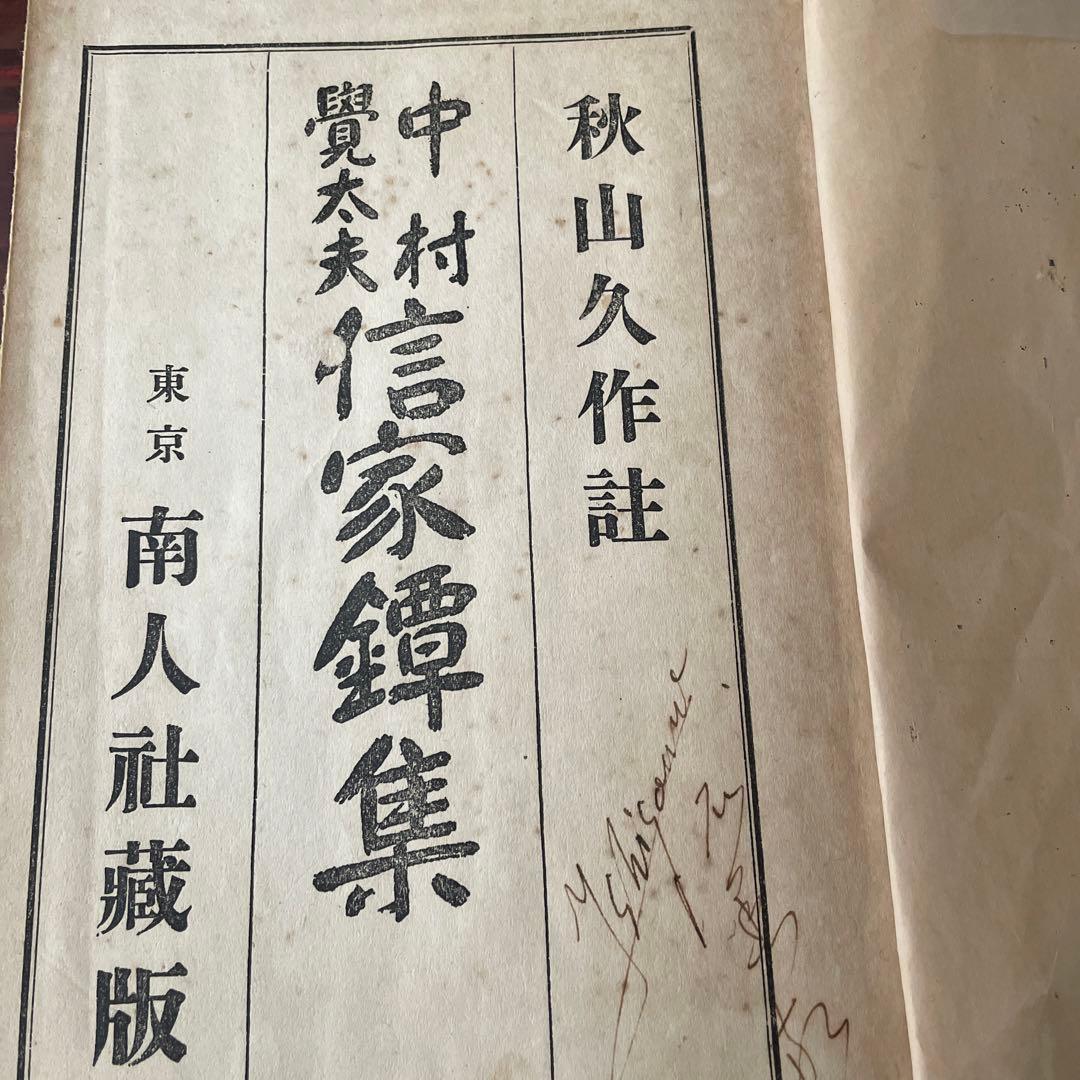 秋山久作註
中村
覺太夫
信家鐔集
東京 南人社藏版